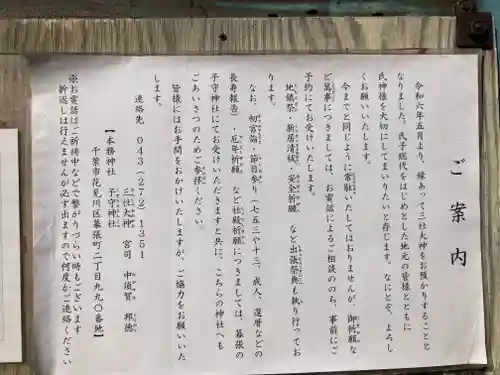 ご案内
令和六年五月より、縁あって三社大神をお預かりすることと
なりました。氏子総代をはじめとした地元の皆様とともに
氏神様を大切にしてまいりたいと存じます。なにとぞ、よろし
くお願いいたします。
今までと同じように常駐いたしてはおりませんが、御祈願な
ど萬事につきましては、お電話によるご相談ののち、事前にご
予約にてお受けいたします。
地鎮祭・新居清祓・安全祈願　など出張祭典も執り行ってお
ります。
なお、初宮詣・節目参り（七五三や十三、成人、還暦などの
長寿報告）・厄年祈願　など社殿祈願につきましては、幕張の
子守神社にてお受けいただきますと共に、こちらの神社へも
ごあいさつのためご参拝ください。
皆様にはお手間をおかけいたしますが、ご協力をお願いいた
します。
連絡先　０４３（２７２）１３５１
三社大神　宮司　中須賀　邦徳
子守神社
【本務神社　千葉市花見川区幕張町二丁目九九〇番地】
※お電話はご祈祷中などで繋がりづらい時もございます
折返しは行えませんが必ず出ますので何度かご連絡ください